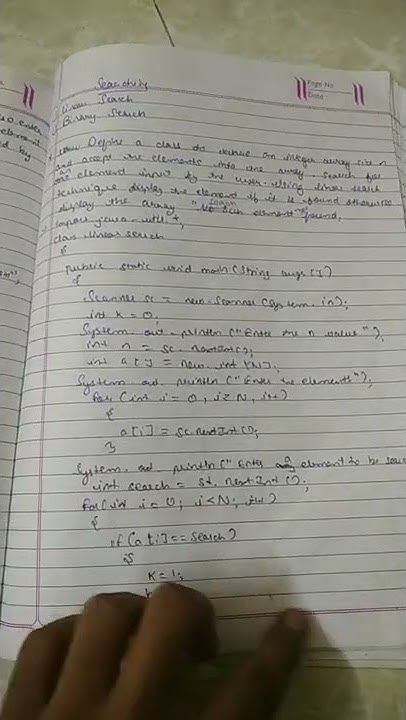 Searching
Page No.
Date
Linear Search
Binary Search
Define a class to declare an integer array size n
and accept the elements into the array. Search for
an element input by the user using linear search
technique display the element if it is found otherwise
display the array "No such element" found.
import java.util.*;
class linear search
{
public static void main (String args [])
{
Scanner sc = new Scanner (System. in);
int k = 0;
System. out. println ("Enter the n value");
int n = sc. nextInt();
int a [] = new int [N];
System. out. println ("Enter the elements");
for (int i = 0, i< N, i++)
{
a[i] = sc.nextInt();
}
System. out. println (" Enter element to be
int search = sc. nextInt ();
for (int i = 0; i<N; i++)
{
if (a[i] == search)
{
K = 1;